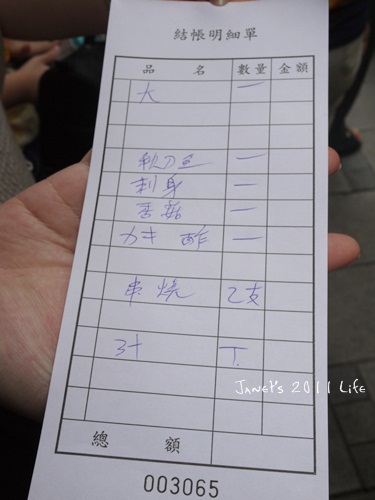 結帳明細單
品 名 數量 金額
大 一
秋刀魚 一
刺身 一
香菇 一
カキ 酢 一
串燒 乙支
計 T.
Janet's 2011 Life
總 額
003065